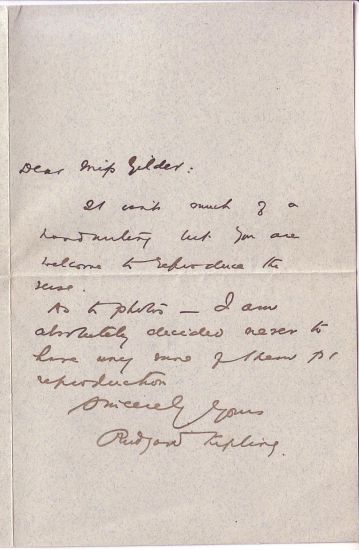 Dear Miss Gilder:
It isn't much of a
handwriting but you are
welcome to reproduce the
verse.
As to photos — I am
absolutely decided never to
have any more of them for
reproduction
Sincerely Yours
Rudyard Kipling.